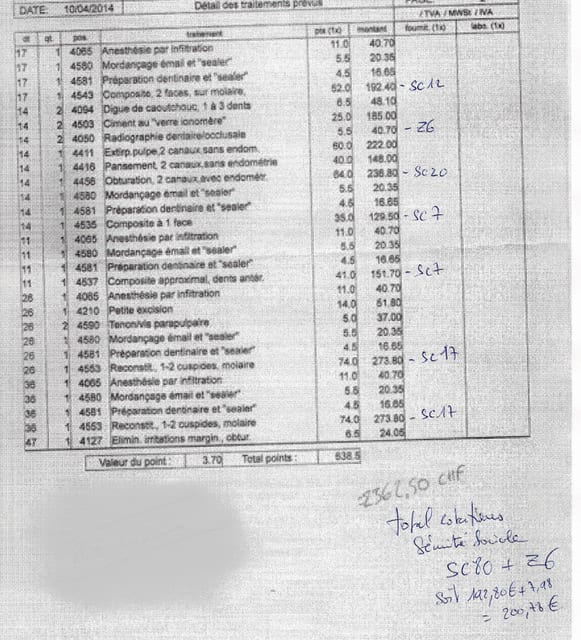 DATE: 10/04/2014 Détail des traitements prévus
/ TVA / MWSt / IVA
dt qt. pos. traitement pts (1x) montant fournit. (1x) labo. (1x)
17 1 4065 Anesthésie par infiltration 11.0 40.70
17 1 4580 Mordançage émail et "sealer" 5.5 20.35
17 1 4581 Préparation dentinaire et "sealer" 4.5 16.65
17 1 4543 Composite, 2 faces, sur molaire, 52.0 192.40 - SC12
14 2 4094 Digue de caoutchouc, 1 à 3 dents 6.5 48.10
14 2 4503 Ciment au "verre ionomère" 25.0 185.00
14 2 4050 Radiographie dentaire/occlusale 5.5 40.70 - Z6
14 1 4411 Extirp.pulpe,2 canaux,sans endom. 60.0 222.00
14 1 4416 Pansement, 2 canaux,sans endométrie 40.0 148.00
14 1 4456 Obturation, 2 canaux,avec endométr. 64.0 236.80 - SC20
14 1 4580 Mordançage émail et "sealer" 5.5 20.35
14 1 4581 Préparation dentinaire et "sealer" 4.5 16.65
14 1 4535 Composite à 1 face 35.0 129.50 - SC7
11 1 4065 Anesthésie par infiltration 11.0 40.70
11 1 4580 Mordançage émail et "sealer" 5.5 20.35
11 1 4581 Préparation dentinaire et "sealer" 4.5 16.65
11 1 4537 Composite approximal, dents antér. 41.0 151.70 - SC7
26 1 4065 Anesthésie par infiltration 11.0 40.70
26 1 4210 Petite excision 14.0 51.80
26 2 4590 Tenon/vis parapulpaire 5.0 37.00
26 1 4580 Mordançage émail et "sealer" 5.5 20.35
26 1 4581 Préparation dentinaire et "sealer" 4.5 16.65
26 1 4553 Reconstit., 1-2 cuspides, molaire 74.0 273.80 - SC17
36 1 4065 Anesthésie par infiltration 11.0 40.70
36 1 4580 Mordançage émail et "sealer" 5.5 20.35
36 1 4581 Préparation dentinaire et "sealer" 4.5 16.65
36 1 4553 Reconstit., 1-2 cuspides, molaire 74.0 273.80 - SC17
47 1 4127 Elimin. irritations margin., obtur. 6.5 24.05
Valeur du point : 3.70 Total points : 638.5
2362,50 CHF
total cotations
Sécurité Sociale
SC80 + Z6
soit 192,80€ + 7,98
= 200,78 €